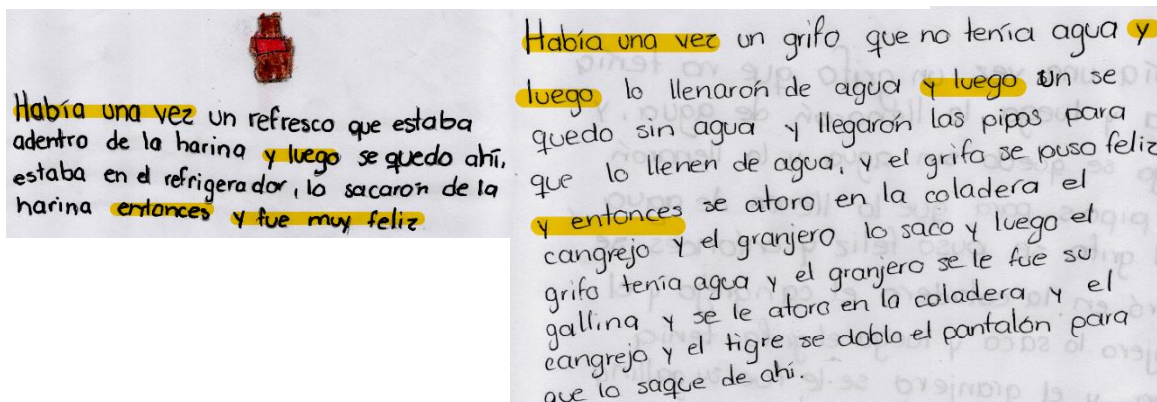 Había una vez un refresco que estaba
adentro de la harina y luego se quedo ahí.
estaba en el refrigerador, lo sacarón de la
harina entonces y fue muy feliz
Había una vez un grifo que no tenía agua y
luego lo llenarón de agua y luego un se
quedo sin agua y llegarón las pipas para
que lo llenen de agua, y el grifo se puso feliz
y entonces se atoro en la coladera el
cangrejo y el granjero lo saco y luego el
grifo tenía agua y el granjero se le fue su
gallina y se le atoro en la coladera y el
cangrejo y el tigre se doblo el pantalón para
que lo saque de ahí.